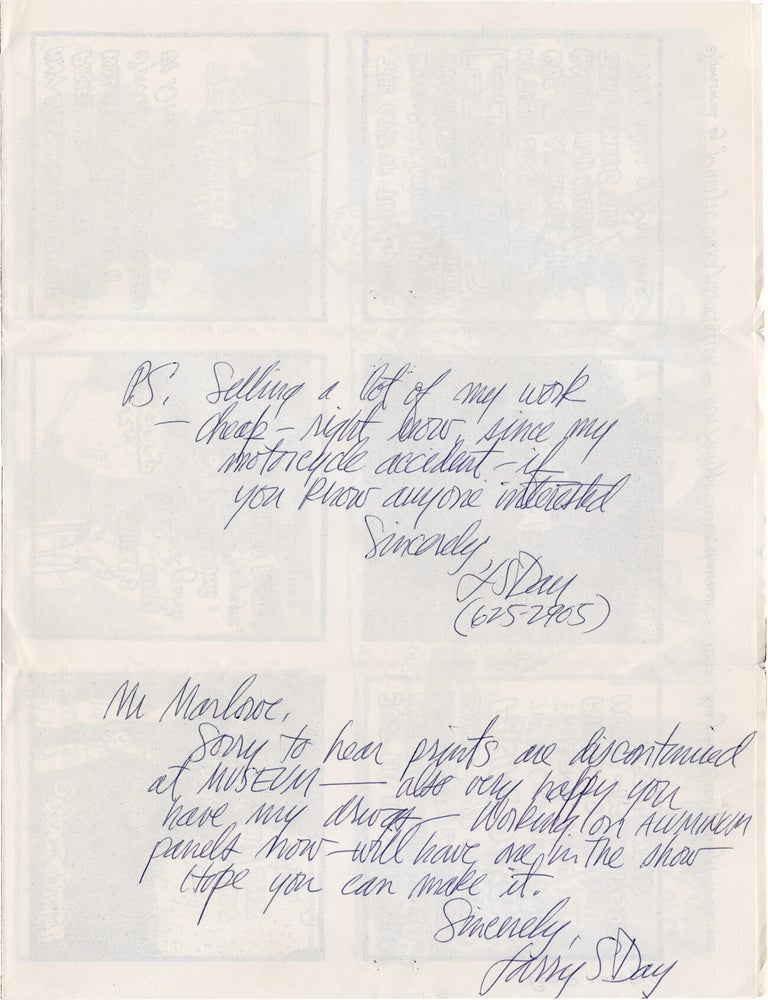 PS. Selling a lot of my work
— cheap — right now, since my
motorcycle accident — if
you know anyone interested
Sincerely
LSDay
(625-2905)
Mr Marlowe,
Sorry to hear prints are discontinued
at MUSEUM — also very happy you
have my — Working on ALUMINUM
panels now — will have one in the show
Hope you can make it.
Sincerely,
Larry S Day